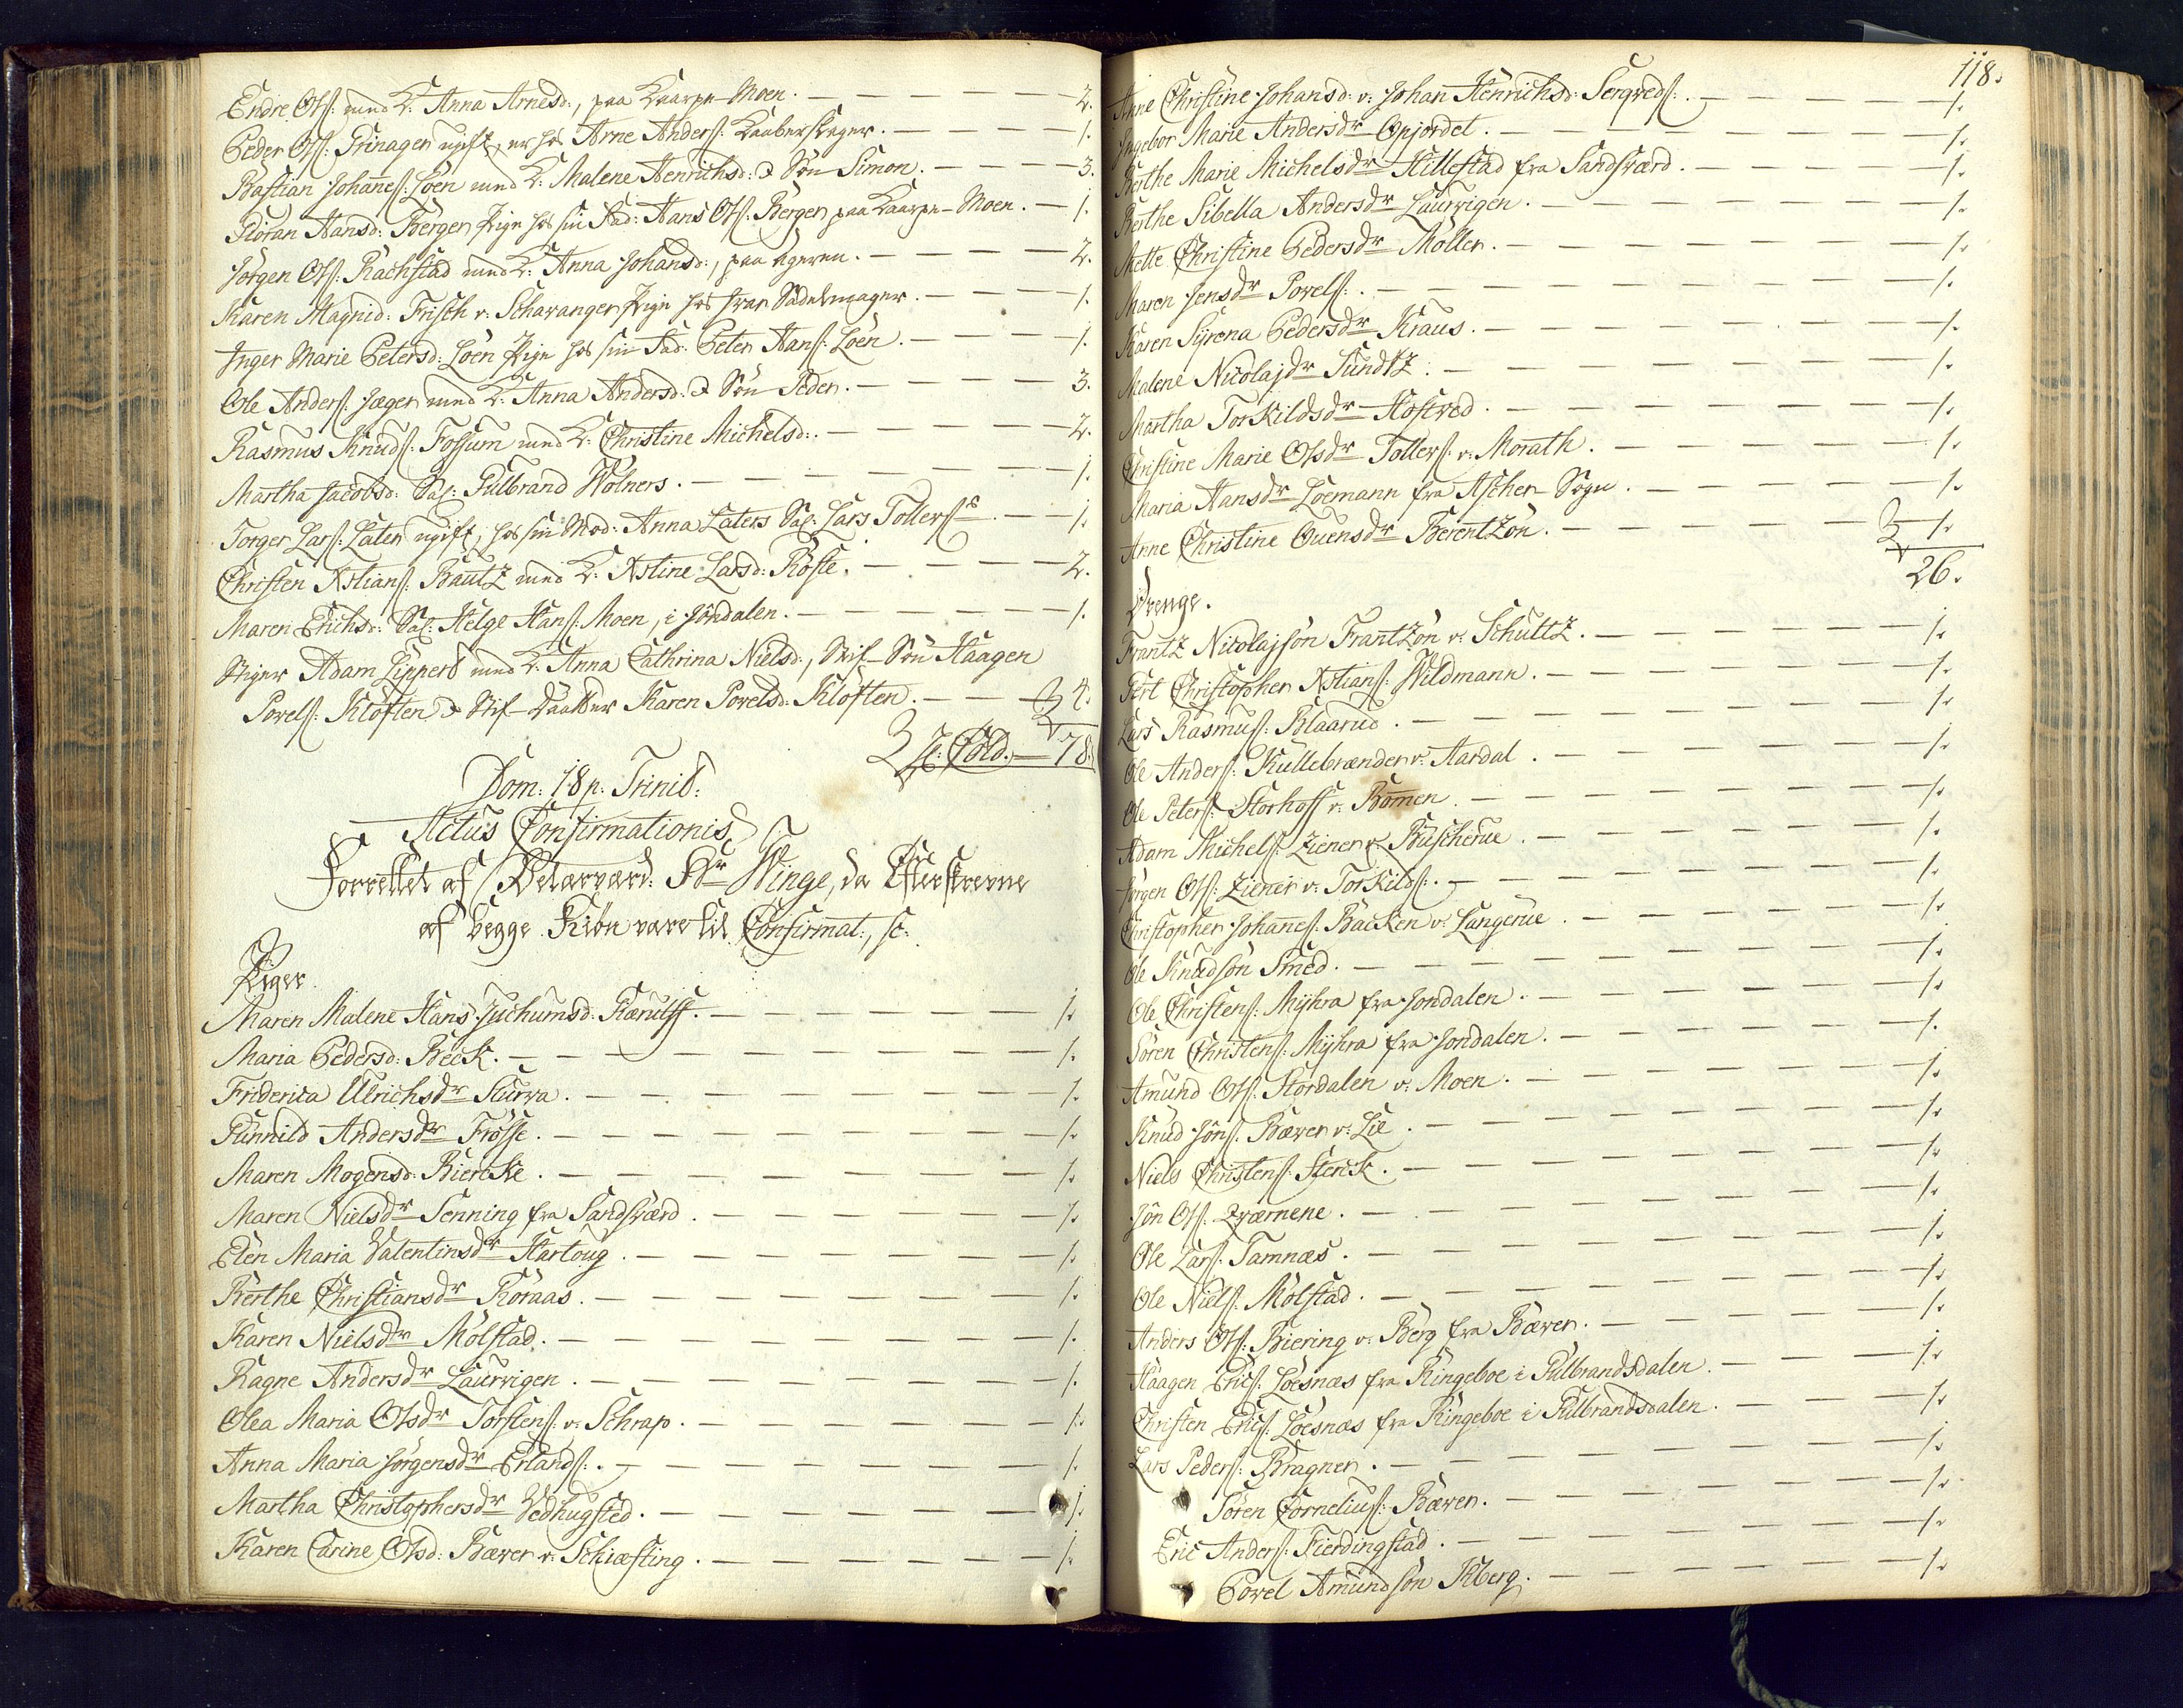 Endre Ols: med K: Anna Arnesd:, paa Kaarpe-Moen. 2.
Peder Ols: ugift, er hos Arne Anders: Kaaberslager. 1.
Bastian Johanes: Loen med K: Malene Henrichsd: & Søn Simon. 3.
Giøran Hansd: Berger Pige hos sin Fad: Hans Ols: Berger paa Kaarpe-Moen. 1.
Jørgen Ols: Rachstad med K: Anna Johansd:, paa Ageren. 2.
Karen Magnid: Frisch v: Schavanger Pige hos Ivar Sadelmager. 1.
Inger Marie Petersd: Loen Pige hos sin Fad: Peter Hans: Loen. 1.
Ole Anders: Jæger med K: Anna Andersd: & Søn Peder. 3.
Rasmus Knuds: Fossum med K: Christine Michelsd: 2.
Martha Jacobsd: Sal: Gulbrand Wølners. 1.
Torger Lars: Laten ugift, hos sin Mod: Anna Laters Sal: Lars Tollers: 1.
Christen Xstians: Bautz med K: Xstine Larsd: Røste. 2.
Maren Erichsd: Sal: Helge Hans: Moen, i Jondalen. 1.
Stiger Adam Lippert med K: Anna Cathrina Nielsd:, Stif-Søn Haagen
Povels: Kløften & Stif-Daatter Karen Povelsd: Kløften. 4.
78.
Dom: 18 p: Trinit:
Actus Confirmationis
Forrettet af Velærværd: Hr Winge, da Efterskrevne
af begge Kiøn vare til Confirmat:, sc:
Piger
Maren Malene Hans Juchumsd: Kærulff. 1.
Maria Pedersd: Beck. 1.
Friderica Ulrichsdr Sturra. 1.
Gunnild Andersdr Frøsse. 1.
Maren Mogensd: Biercke. 1.
Maren Nielsdr Senning fra Sandsværd. 1.
Elen Maria Valentinsdr Hartoug. 1.
Berthe Christiansdr Roraas. 1.
Karen Nielsdr Mølstad. 1.
Ragne Andersdr Laurvigen. 1.
Olea Maria Olsdr Torstens: v: Schrap. 1.
Anna Maria Jørgensdr Erlands: 1.
Martha Christophersdr Vedhugsted. 1.
Karen Carine Olsd: Bæver v: Schiæsting. 1.
118.
Anne Christine Johansd: v: Johan Henrichsd: Serqveds: 1.
Ingebor Marie Andersdr Opjordet. 1.
Berthe Marie Michelsdr Hillestad fra Sandsværd. 1.
Berthe Sibella Andersdr Laurvigen. 1.
Mette Christine Pedersdr Møller. 1.
Maren Jensdr Povels: 1.
Karen Syrena Pedersdr Kraus. 1.
Malene Nicolajdr Sundtz. 1.
Martha Torkildsdr Hostved. 1.
Christine Marie Olsdr Tollers: v: Morath. 1.
Maria Hansdr Loemann fra Ascher Sogn. 1.
Anne Christine Ouensdr Berentzøn. 1.
26.
Drenge.
Frantz Nicolajsøn Frantzøn v: Schultz. 1.
Gert Christopher Xstians: Wildmann. 1.
Lars Rasmus: Blaarud. 1.
Ole Anders: Kullebrænder v: Aardal. 1.
Ole Peters: Storhoff v: Bommen. 1.
Adam Michels: Ziener v: Buscherue. 1.
Jørgen Ols: Ziener v: Torkilds: 1.
Christopher Johanes: Backen v: Langerue. 1.
Ole Knudsøn Smed. 1.
Ole Christens: Myhra fra Jondalen. 1.
Søren Christens: Myhra fra Jondalen. 1.
Amund Ols: Stordalen v: Moen. 1.
Knud Jøns: Bæver v: Lie. 1.
Niels Christens: Sterck. 1.
Jøn Ols: Qværnene. 1.
Ole Lars: Tamnæs. 1.
Ole Niels: Mølstad. 1.
Anders Ols: Biering v: Berg fra Bæver. 1.
Haagen Erics: Loesnæs fra Ringeboe i Gulbrandsdalen. 1.
Christen Erics: Loesnæs fra Ringeboe i Gulbrandsdalen. 1.
Lars Peders: Bragner. 1.
Søren Cornelius: Bæver. 1.
Eric Anders: Fierdingstad. 1.
Povel Amundsøn Kberg. 1.